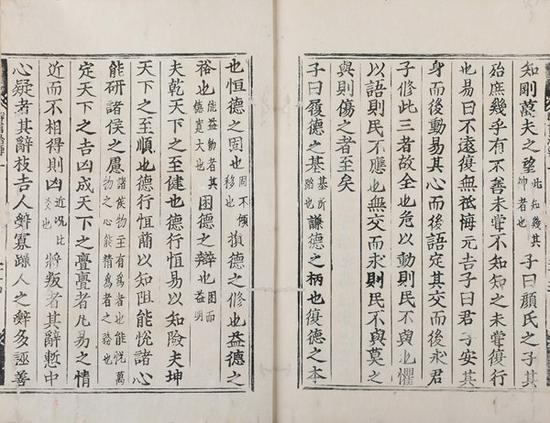 知剛萬夫之望此知幾其神者也子曰顏氏之子其
殆庶幾乎有不善未嘗不知知之未嘗復行
也易曰不遠復無祗悔元吉子曰君子安其
身而後動易其心而後語定其交而後求君
子修此三者故全也危以動則民不與也懼
以語則民不應也無交而求則民不與莫之
與則傷之者至矣
子曰履德之基基所蹈也謙德之柄也復德之本
也恒德之固也固不傾移也損德之修也益德之
裕也能益物者其德寬大也困德之辯也困而益明
夫乾天下之至健也德行恒易以知險夫坤
天下之至順也德行恒簡以知阻能恱諸心
能研諸侯之慮諸侯物主有為者也能恱萬物之心能精為者之務也
定天下之吉凶成天下之亹亹者凡易之情
近而不相得則凶近况比爻也將叛者其辭慙中
心疑者其辭枝吉人辭寡躁人之辭多誣善